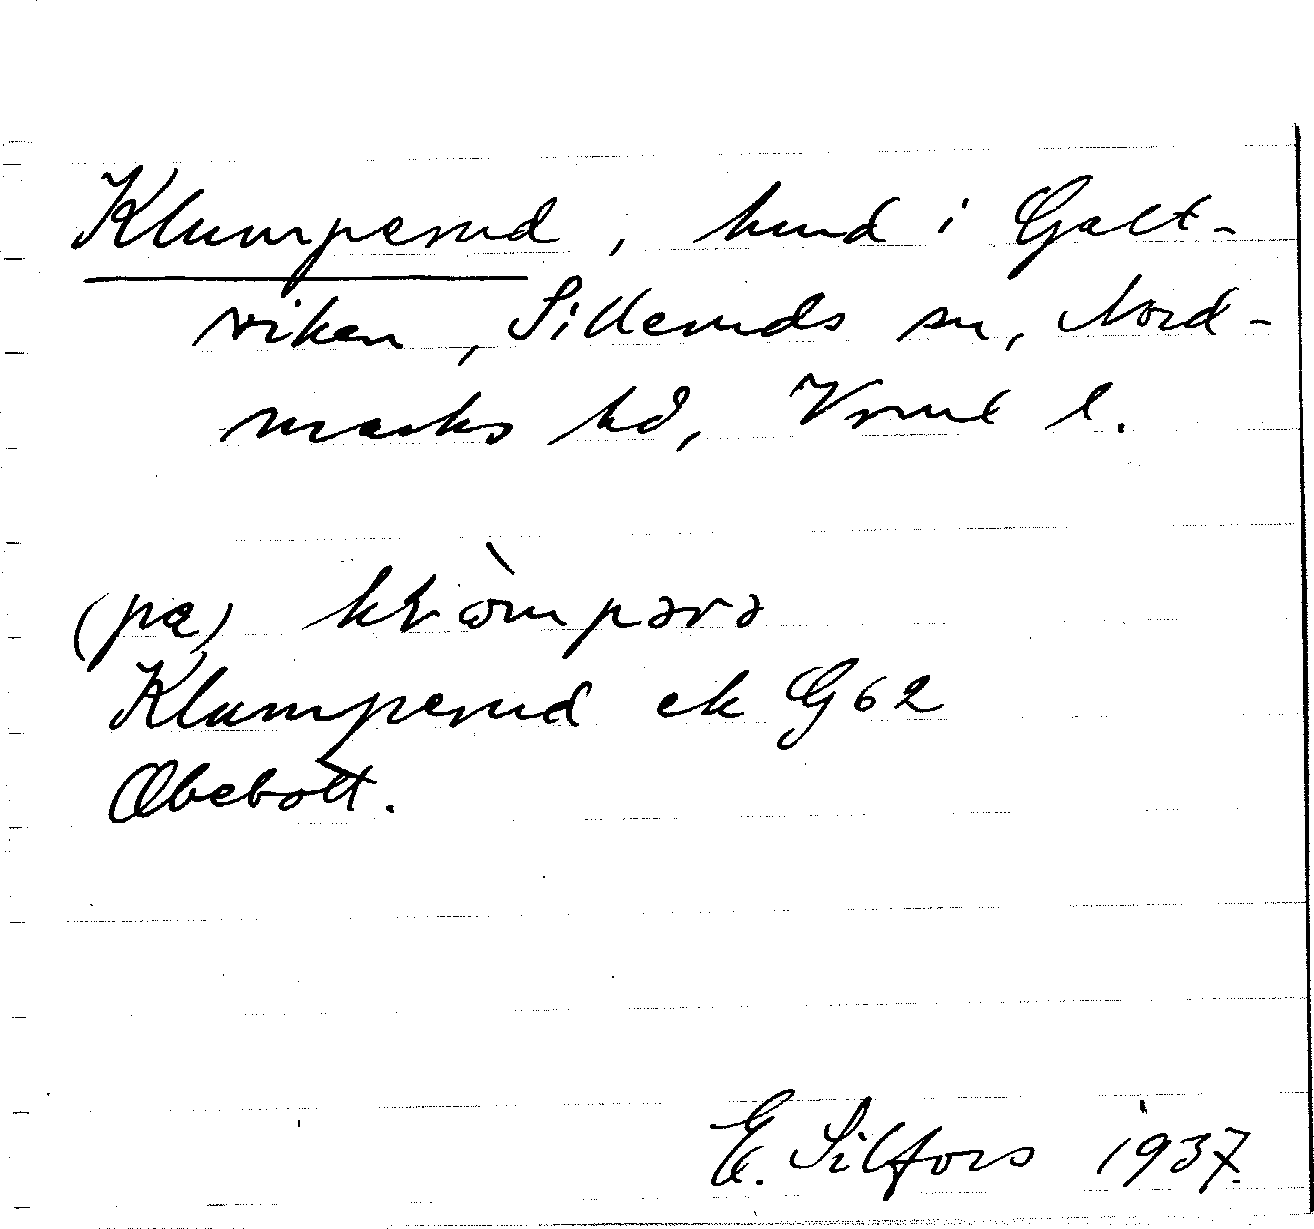 Klumperud, hmd i Galt-
viken, Silleruds sn, Nord-
marks hd, Vrml l.
(pɑ)
Klumperud ek G62
Obebott.
E. Silfors 1937.